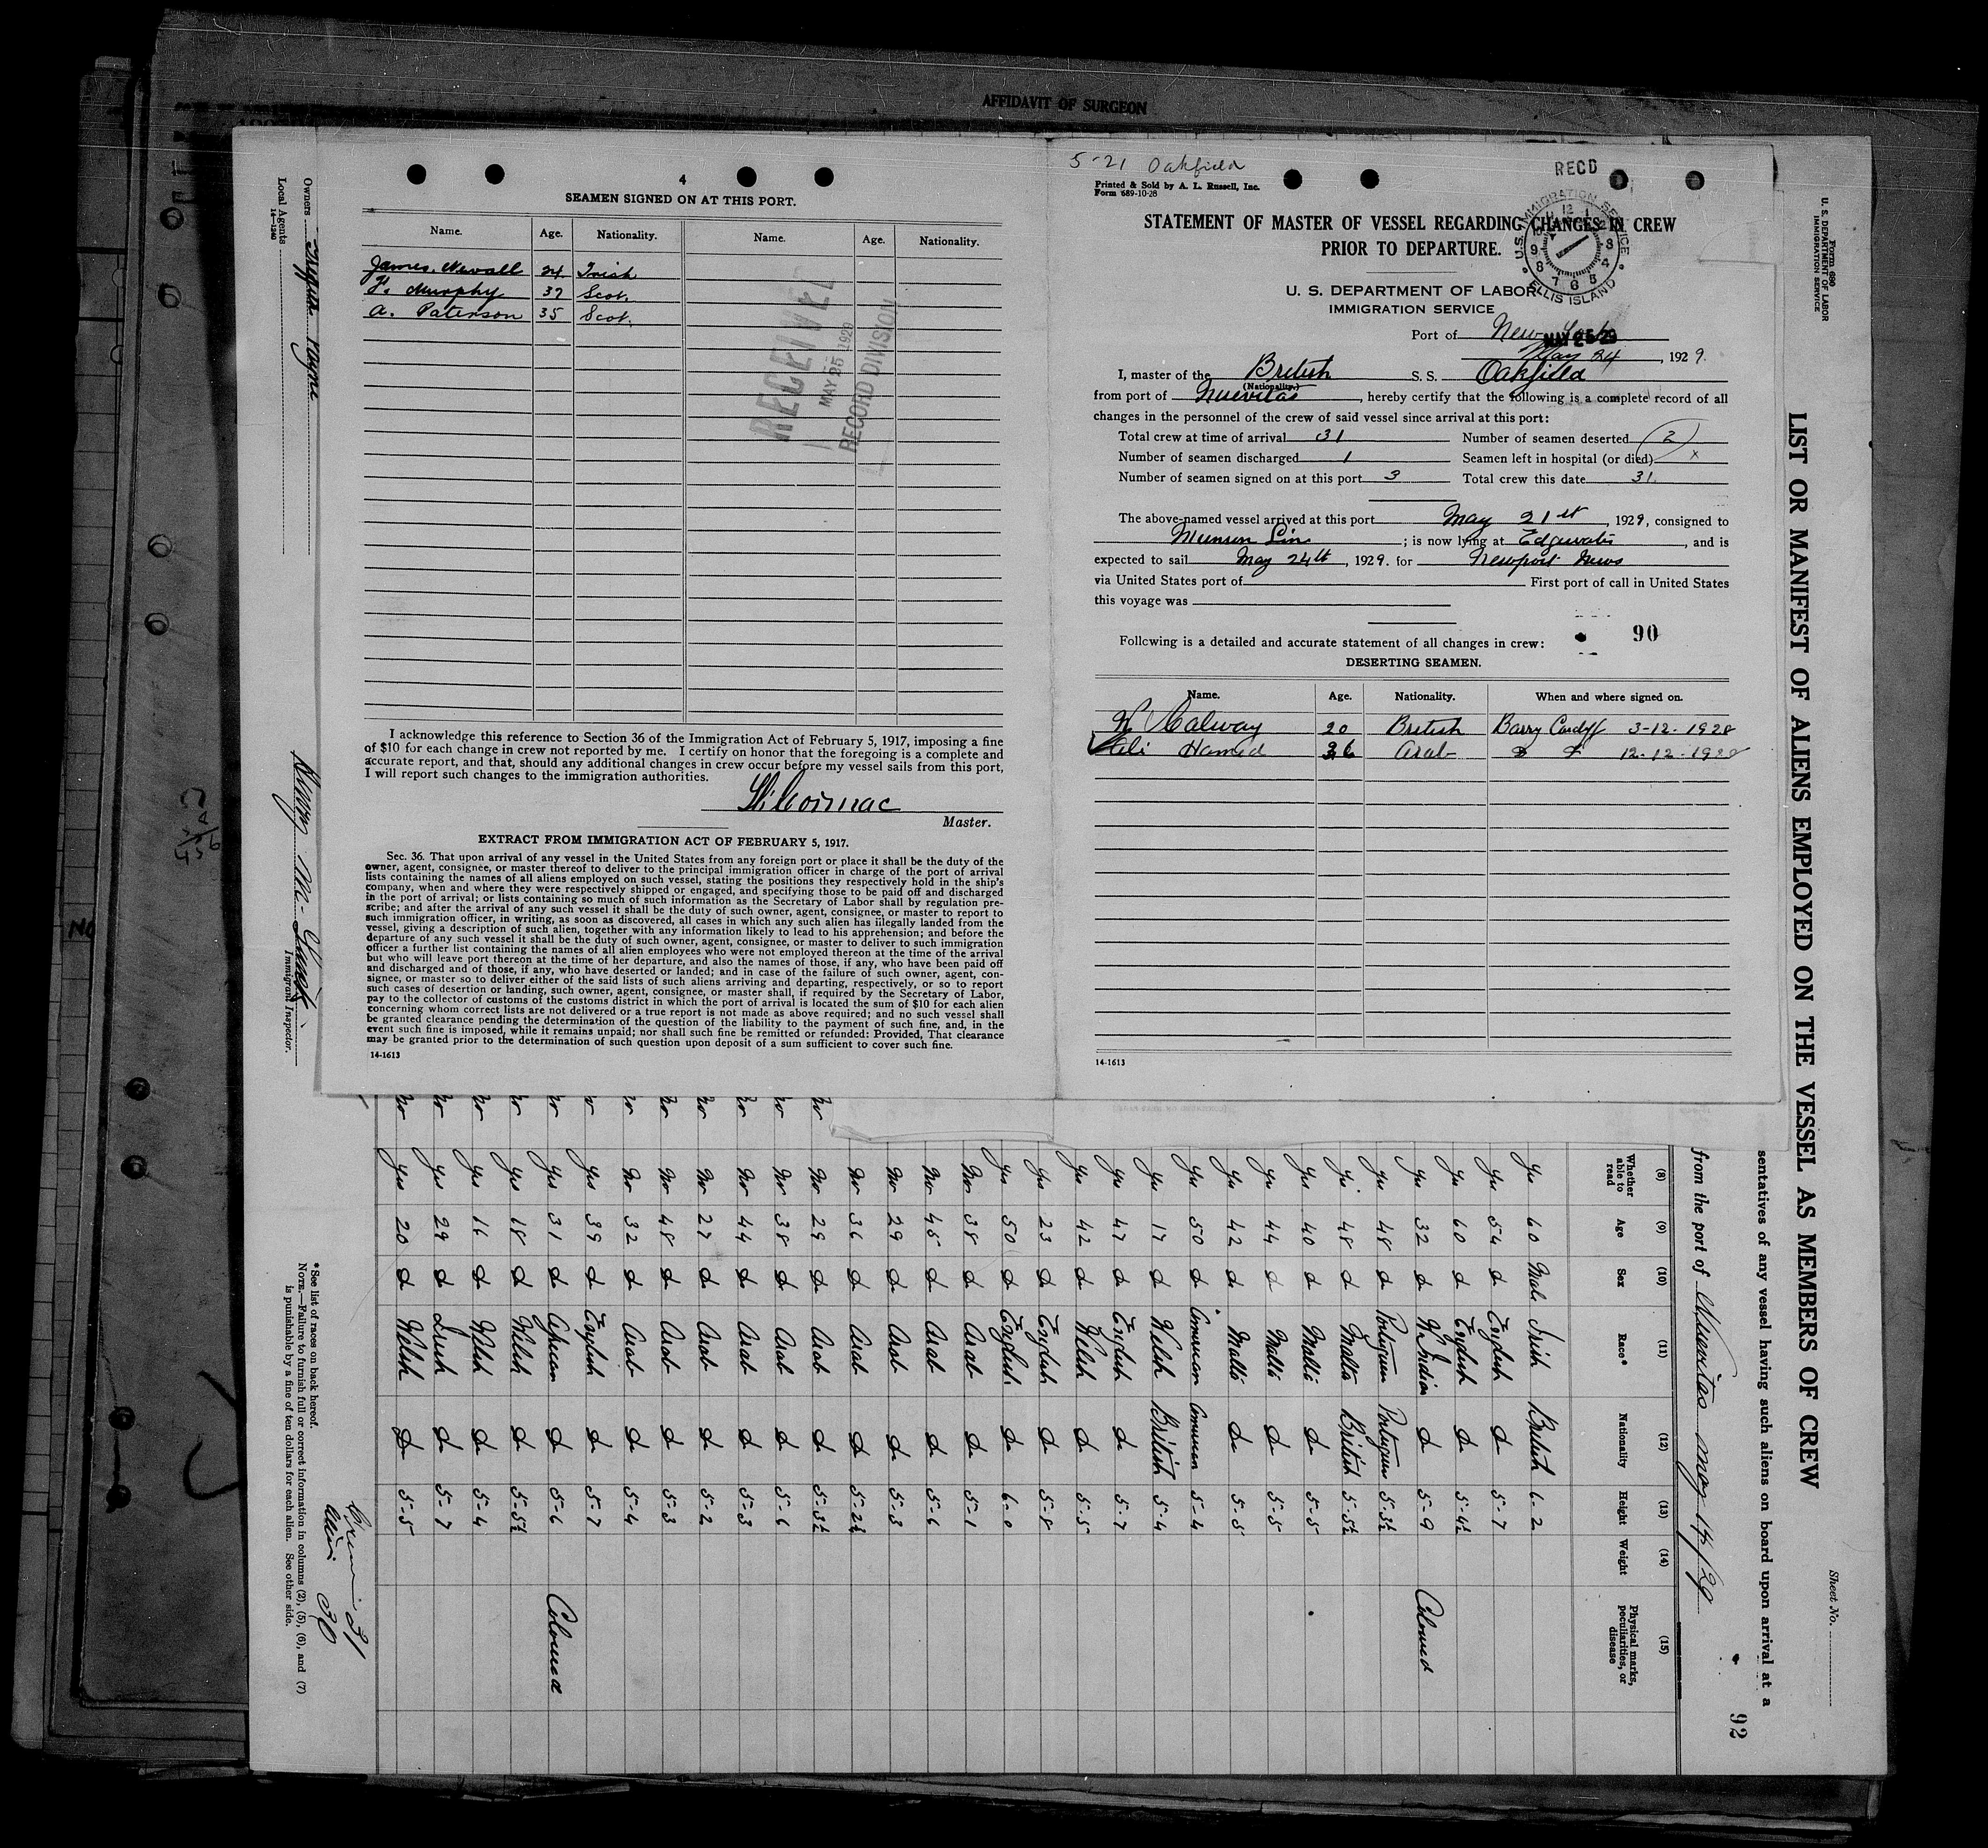 AFFIDAVIT OF SURGEON
4
SEAMEN SIGNED ON AT THIS PORT.
Name. Age. Nationality. Name. Age. Nationality.
James. Newall 24 Irish
F. Murphy 37 Scot.
A. Paterson 35 Scot.
RECEIVED
MAY 25 1929
RECORD DIVISION
I acknowledge this reference to Section 36 of the Immigration Act of February 5, 1917, imposing a fine
of $10 for each change in crew not reported by me. I certify on honor that the foregoing is a complete and
accurate report, and that, should any additional changes in crew occur before my vessel sails from this port,
I will report such changes to the immigration authorities.
Master.
EXTRACT FROM IMMIGRATION ACT OF FEBRUARY 5, 1917.
Sec. 36. That upon arrival of any vessel in the United States from any foreign port or place it shall be the duty of the
owner, agent, consignee, or master thereof to deliver to the principal immigration officer in charge of the port of arrival
lists containing the names of all aliens employed on such vessel, stating the positions they respectively hold in the ship's
company, when and where they were respectively shipped or engaged, and specifying those to be paid off and discharged
in the port of arrival; or lists containing so much of such information as the Secretary of Labor shall by regulation pre-
scribe; and after the arrival of any such vessel it shall be the duty of such owner, agent, consignee, or master to report to
such immigration officer, in writing, as soon as discovered, all cases in which any such alien has illegally landed from the
vessel, giving a description of such alien, together with any information likely to lead to his apprehension; and before the
departure of any such vessel it shall be the duty of such owner, agent, consignee, or master to deliver to such immigration
officer a further list containing the names of all alien employees who were not employed thereon at the time of the arrival
but who will leave port thereon at the time of her departure, and also the names of those, if any, who have been paid off
and discharged and of those, if any, who have deserted or landed; and in case of the failure of such owner, agent, con-
signee, or master so to deliver either of the said lists of such aliens arriving and departing, respectively, or so to report
such cases of desertion or landing, such owner, agent, consignee, or master shall, if required by the Secretary of Labor,
pay to the collector of customs of the customs district in which the port of arrival is located the sum of $10 for each alien
concerning whom correct lists are not delivered or a true report is not made as above required; and no such vessel shall
be granted clearance pending the determination of the question of the liability to the payment of such fine, and, in the
event such fine is imposed, while it remains unpaid; nor shall such fine be remitted or refunded: Provided, That clearance
may be granted prior to the determination of such question upon deposit of a sum sufficient to cover such fine.
14-1613
5-21 Oakfield
Printed & Sold by A. L. Russell, Inc.
Form 689-10-28
RECD
U.S. IMMIGRATION SERVICE
ELLIS ISLAND
STATEMENT OF MASTER OF VESSEL REGARDING CHANGES IN CREW
PRIOR TO DEPARTURE.
U. S. DEPARTMENT OF LABOR
IMMIGRATION SERVICE
Port of New York
MAY 25 29
May 24, 1929.
I, master of the British S. S. Oakfield
(Nationality.)
from port of Nuevitas, hereby certify that the following is a complete record of all
changes in the personnel of the crew of said vessel since arrival at this port:
Total crew at time of arrival 31 Number of seamen deserted 2
Number of seamen discharged 1 Seamen left in hospital (or died) x
Number of seamen signed on at this port 3 Total crew this date 31.
The above-named vessel arrived at this port May 21st, 1929, consigned to
Munson Line; is now lying at Edgewater, and is
expected to sail May 24th, 1929. for Newport News
via United States port of First port of call in United States
this voyage was
90
Following is a detailed and accurate statement of all changes in crew:
DESERTING SEAMEN.
Name. Age. Nationality. When and where signed on.
W. Calway 20 British Barry Cardiff 3-12-1928
Ali Hamed 36 Arab Do Do 12-12-1928
14-1613
Form 680
U. S. DEPARTMENT OF LABOR
IMMIGRATION SERVICE
LIST OR MANIFEST OF ALIENS EMPLOYED ON THE VESSEL AS MEMBERS OF CREW
Sheet No.
sentatives of any vessel having such aliens on board upon arrival at a
92
from the port of Nuevitas May 14/29
(8) (9) (10) (11) (12) (13) (14) (15)
Whether able to read Age Sex Race* Nationality Height Weight Physical marks, peculiarities, or disease
Yes 60 Male Irish British 6-2
Yes 54 Do English Do 5-7
Yes 60 Do English Do 5-4½
Yes 32 Do W. Indian Do 5-9 Coloured
Yes 48 Do Portuguese Portuguese 5-3½
Yes 48 Do Malta British 5-5½
Yes 40 Do Malta Do 5-5
Yes 44 Do Malta Do 5-5
Yes 42 Do Malta Do 5-5
Yes 50 Do American American 5-4
Yes 17 Do Welsh British 5-4
Yes 47 Do English Do 5-7
Yes 42 Do Welsh Do 5-5
Yes 23 Do English Do 5-8
Yes 50 Do English Do 6-0
No 38 Do Arab Do 5-1
No 45 Do Arab Do 5-6
No 29 Do Arab Do 5-3
No 36 Do Arab Do 5-2½
No 29 Do Arab Do 5-3½
No 38 Do Arab Do 5-6
No 44 Do Arab Do 5-3
No 27 Do Arab Do 5-2
No 48 Do Arab Do 5-3
No 32 Do Arab Do 5-4
Yes 39 Do English Do 5-7
Yes 31 Do African Do 5-6 Coloured
Yes 18 Do Welsh Do 5-5½
Yes 16 Do Welsh Do 5-4
Yes 29 Do Irish Do 5-7
Yes 20 Do Welsh Do 5-5
Crew 31
30
*See list of races on back hereof.
NOTE.—Failure to furnish full or correct information in columns (2), (5), (6), and (7)
is punishable by a fine of ten dollars for each alien. See other side.
Immigrant Inspector.
Owners
Local Agents
14-1240